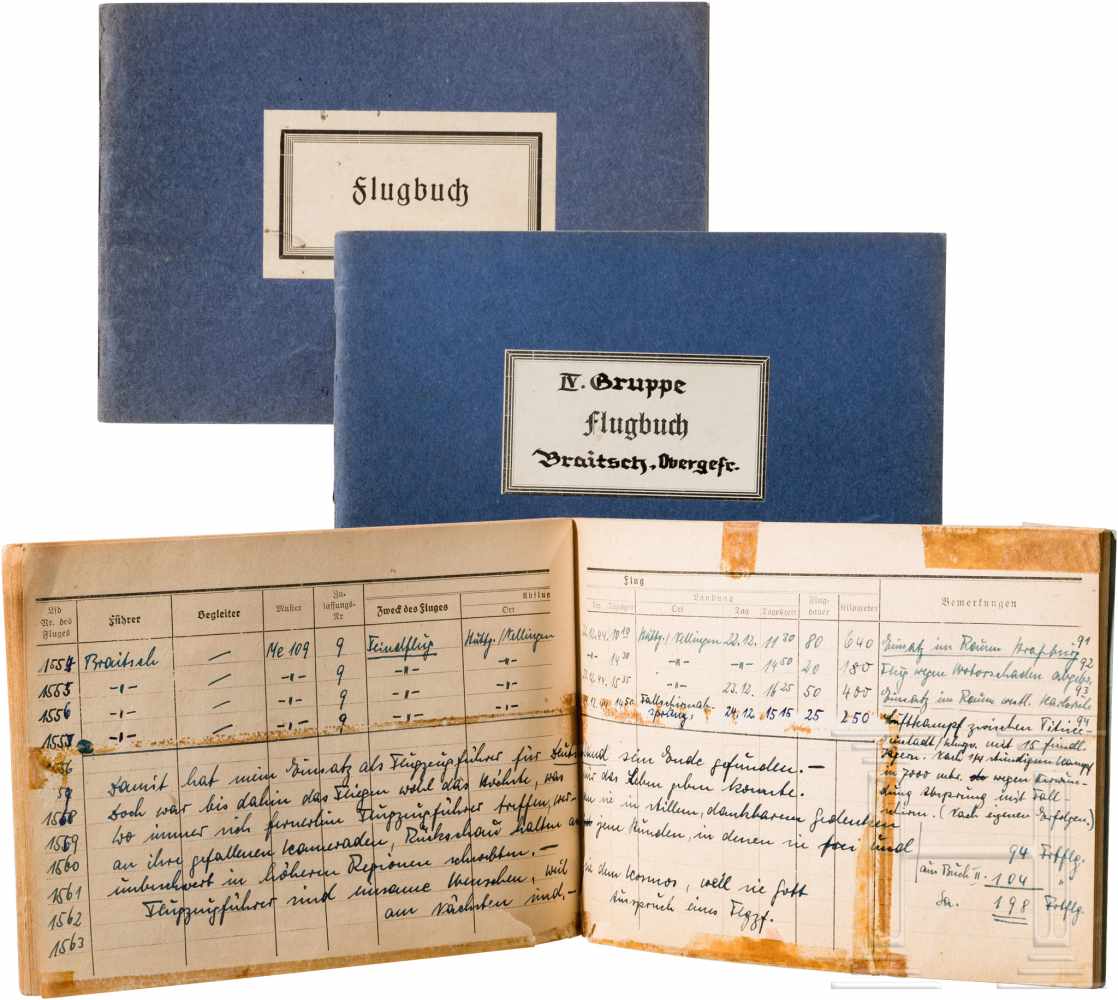 Flugbuch
IV. Gruppe
Flugbuch
Braitsch, Obergefr.
Flug
Lfd Nr. des Fluges
Führer
Begleiter
Muster
Zu-lassungs-Nr
Zweck des Fluges
Abflug
Ort
Tag
Tageszeit
Landung
Ort
Tag
Tageszeit
Flug-dauer
Kilometer
Bemerkungen
1554 Braitsch — Me 109 9 Feindflug Stuttg./Nellingen 22.12.44. 10 19 Stuttg./Nellingen 22.12. 11 30 80 640 Einsatz im Raum Straßburg 91
1555 -"- — -"- 9 -"- 14 30 -"- -"- 14 50 20 180 Flug wegen Motorschaden abgebr. 92
1556 -"- — -"- 9 23.12.44. 15 35 23.12. 16 25 50 400 Einsatz im Raum westl. Karlsruhe 93
1557 -"- — -"- 9 Fallschirmab-sprung. 24.12 15 15 25 250 Luftkampf zwischen Titisee- 94
neustadt/ mit 15 feindl.
Jägern. Nach stündigem Kampf
in 7000 mtr. wegen Verwun-
dung Absprung mit Fall
schirm. (Nach eigenen Erfolgen.)
94 Frtflg.
aus Buch II. 104 "
Sa. 198 Frtflg.
Damit hat mein Einsatz als Flugzeugführer für Deutschland sein Ende gefunden. —
Doch war bis dahin das Fliegen wohl das Höchste, was mir das Leben geben konnte.
Wo immer sich fernerhin Flugzeugführer treffen, wer-den sie in stillem, dankbarem Gedenken
an ihre gefallenen Kameraden, Rückschau halten an jene Stunden, in denen sie frei und
unbeschwert in höheren Regionen schwebten. —
Flugzeugführer sind einsame Menschen, weil sie dem Kosmos, weil sie Gott
am nächsten sind. — Ausspruch eines Flgzf.
56
59
1568
1569
1560
1561
1562
1563